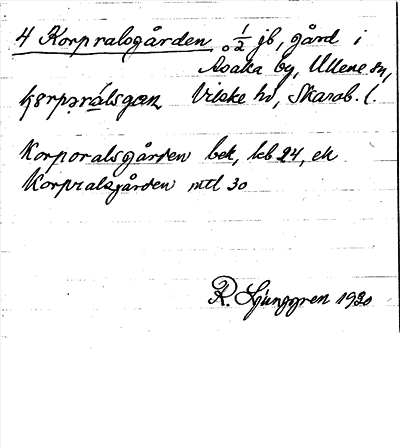 4 Korpralsgården ½ jb, gård i
Åsaka by, Ullene sn,
Vilske hd, Skarab. l.
Korporalsgården bek, kb 24, ek
Korpralsgården mtl 30
R. Ljunggren 1930